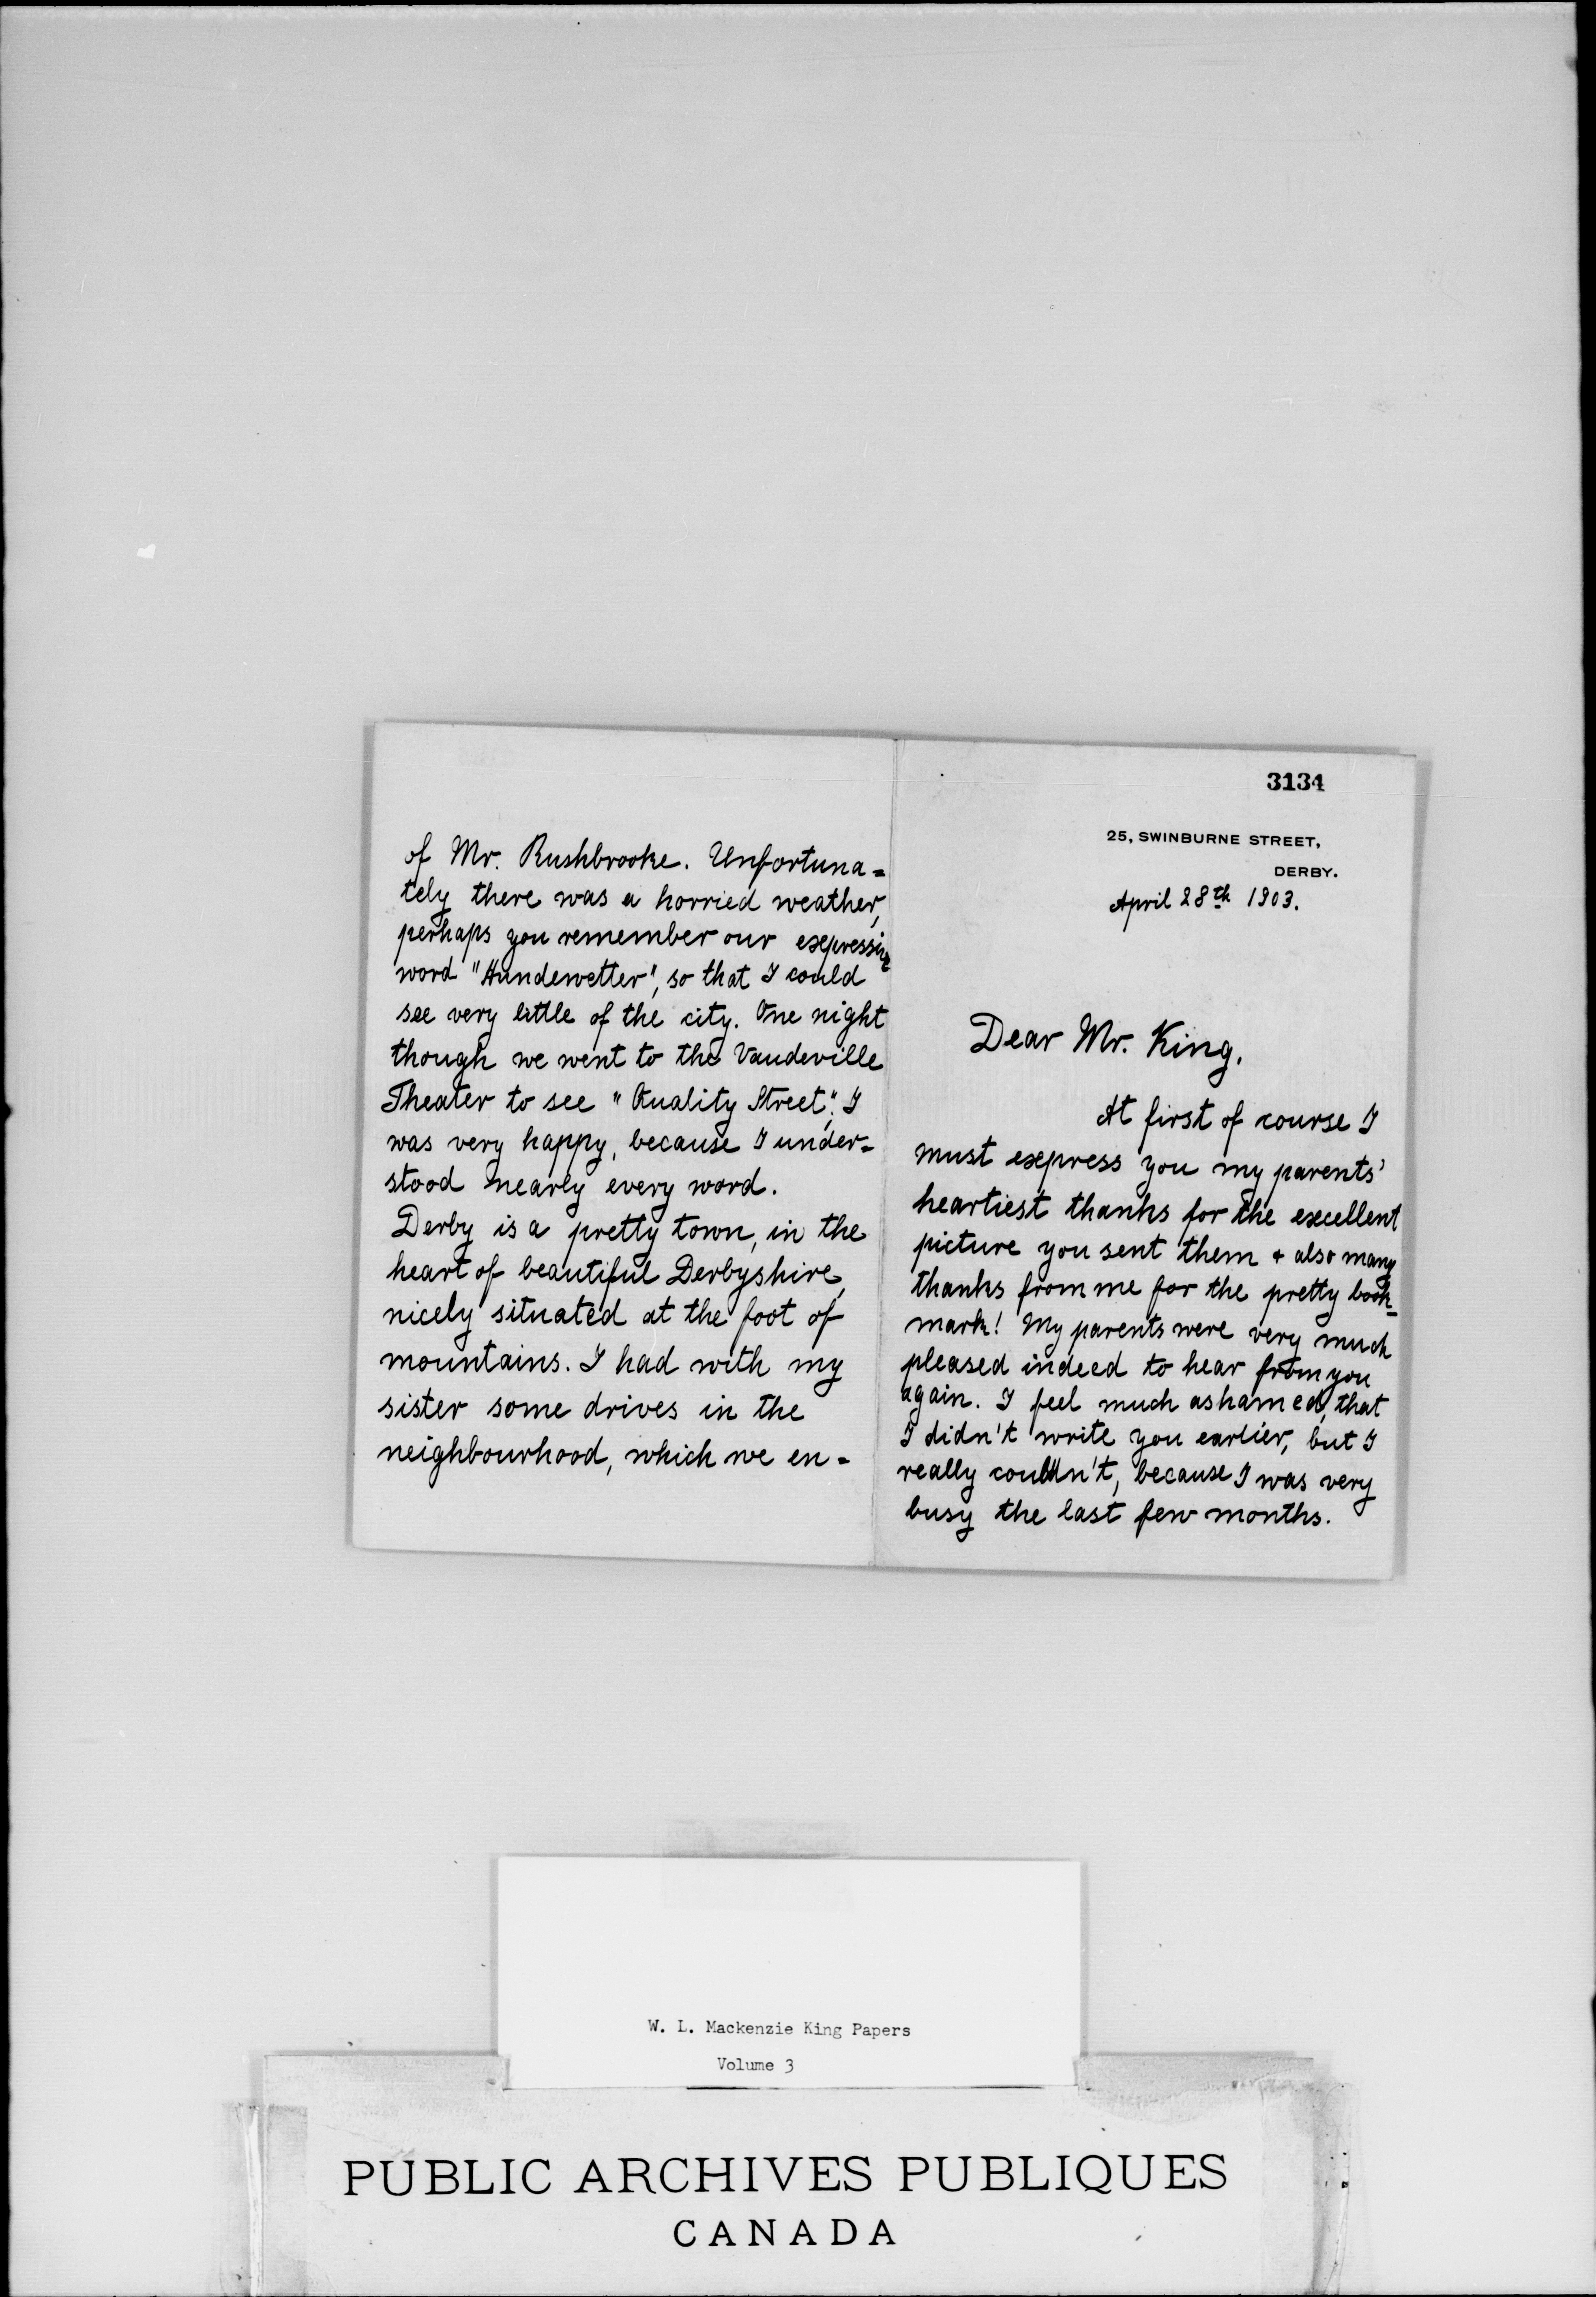 of Mr. Rushbrooke. Unfortuna=
tely there was a horried weather,
perhaps you remember our expressive
word "Hundewetter", so that I could
see very little of the city. One night
though we went to the Vaudeville
Theater to see "Quality Street". I
was very happy, because I under=
stood nearly every word.
Derby is a pretty town, in the
heart of beautiful Derbyshire,
nicely situated at the foot of
mountains. I had with my
sister some drives in the
neighbourhood, which we en=
3134
25, SWINBURNE STREET,
DERBY.
April 28th 1903.
Dear Mr. King,
At first of course I
must express you my parents'
heartiest thanks for the excellent
picture you sent them + also many
thanks from me for the pretty book=
mark! My parents were very much
pleased indeed to hear from you
again. I feel much ashamed, that
I didn't write you earlier, but I
really couldn't, because I was very
busy the last few months.
W. L. Mackenzie King Papers
Volume 3
PUBLIC ARCHIVES PUBLIQUES
CANADA